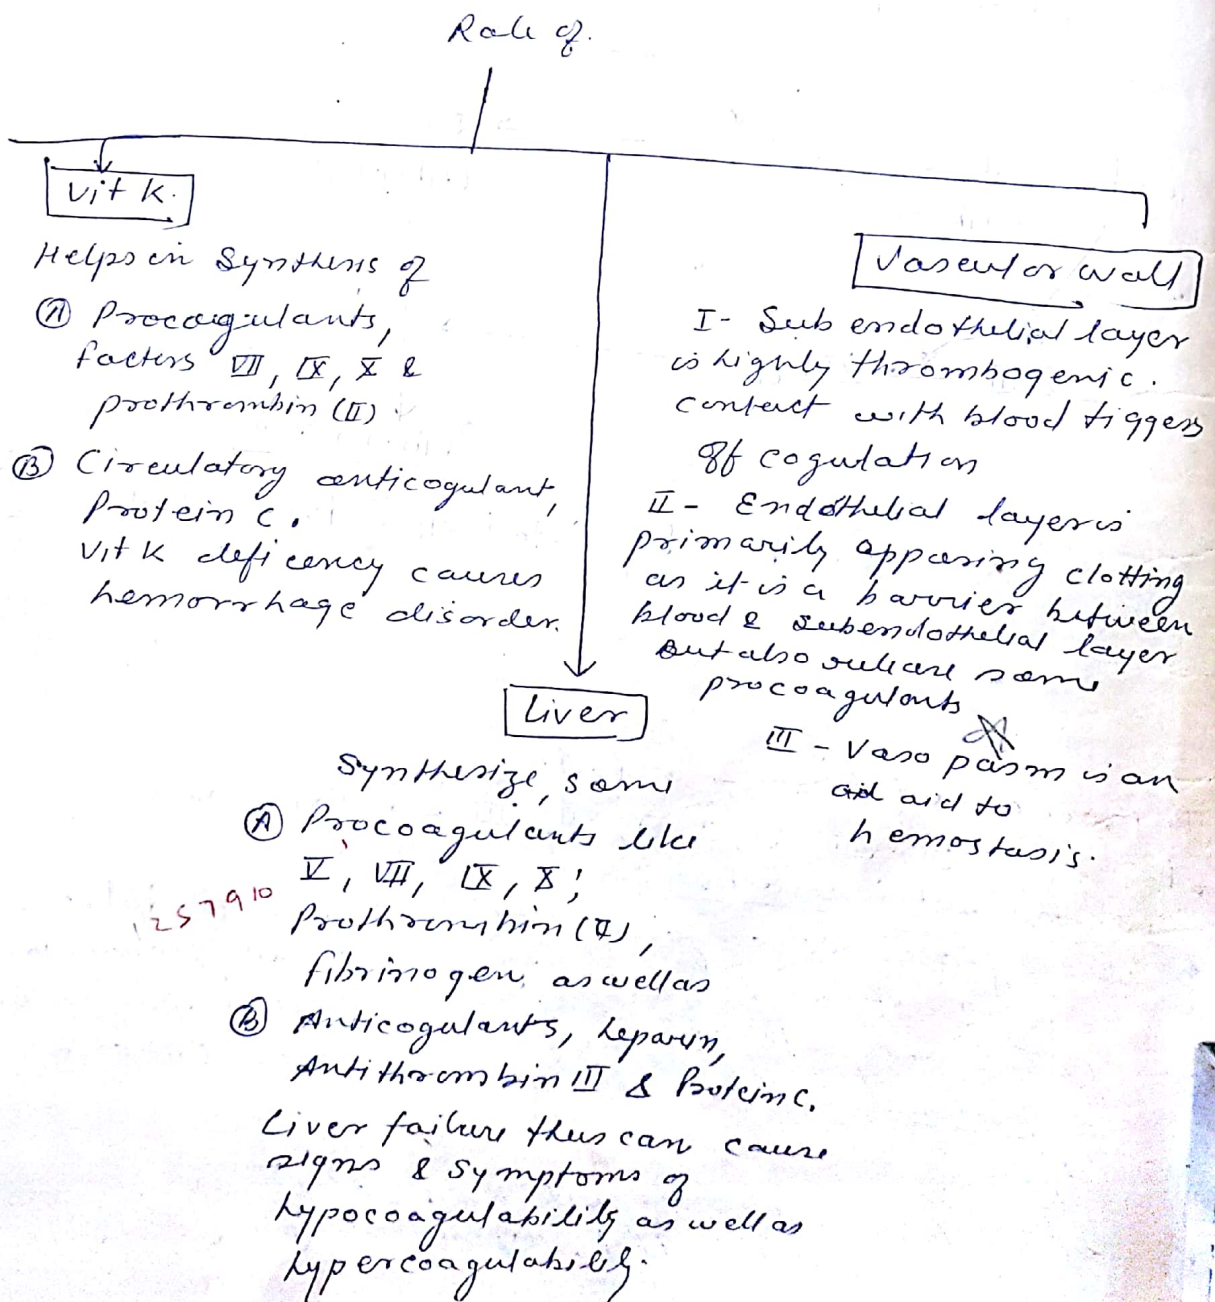 Role of.
Vit K.
Helps in Synthesis of
Ⓐ Procoagulants,
factors VII, IX, X &
prothrombin (II).
Ⓑ Circulatory anticogulant,
Protein C.
Vit K deficency causes
hemorrhage disorder.
Vascular wall
I- Sub endothelial layer
is highly thrombogenic.
contact with blood tiggers
off cogulation
II- Endothelial layer is
primarily opposing clotting
as it is a barrier between
blood & subendothelial layer
But also release some
procoagulants
III - Vaso pasm is an
aid to
hemostasis.
Liver
Synthesize, some
Ⓐ Procoagulants like
V, VII, IX, X;
1 2 5 7 9 10
Prothrombin (II),
fibrinogen, as well as
Ⓑ Anticogulants, heparin,
Antithrombin III & Protein C.
Liver failure thus can cause
signs & symptoms of
hypocoagulability as well as
hypercoagulability.